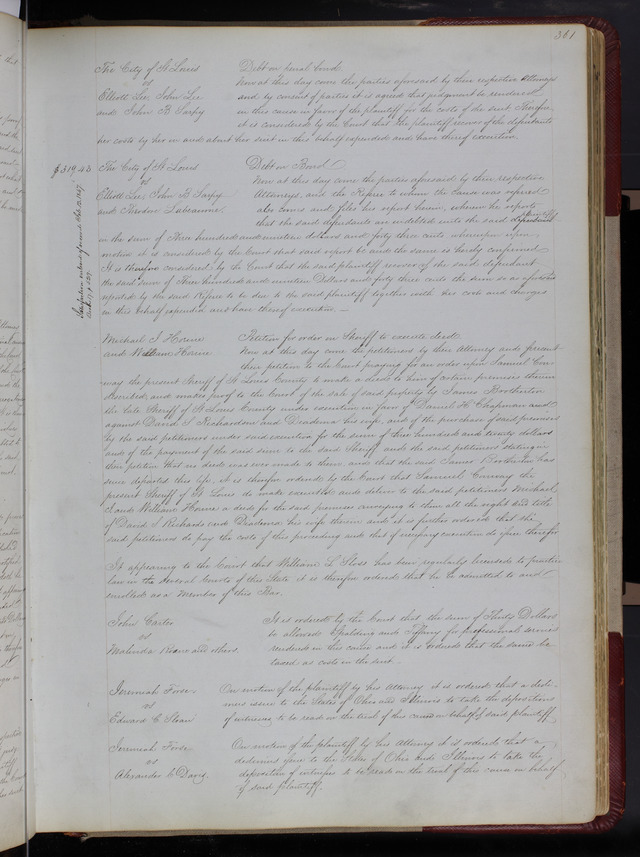 361
The City of St Louis
vs
Elliott Lee, John Lee
and John B Sarpy
Debt on penal bond.
Now at this day come the parties aforesaid by their respective attorneys
and by consent of parties it is agreed that judgment be rendered
in this cause in favor of the plaintiff for the costs of the suit. Therefore
it is considered by the Court that the plaintiff recover of the defendants
her costs by her in and about her suit in this behalf expended and have thereof execution.
$319.43
The City of St Louis
vs
Elliott Lee, John B Sarpy
and Theodore
Debt on Bond
Now at this day come the parties aforesaid by their respective
Attorneys, and the Referee to whom the Cause was referred
also comes and files his report herein, wherein he reports
that the said defendants are indebted unto the said plaintiff
in the sum of Three hundred and nineteen dollars and forty three cents whereupon upon
motion it is considered by the Court that said report be and the same is hereby confirmed
It is therefore considered by the Court that the said plaintiff recover of the said defendant
the said sum of Three hundred and nineteen Dollars and forty three cents the sum so as aforesaid
reported by the said Referee to be due to the said plaintiff together with her costs and charges
in this behalf expended and have thereof execution.
Satisfaction entered of record
Michael S
and William
Petition for order on Sheriff to execute deed.
Now at this day come the petitioners by their Attorney and present
their petition to the Court praying for an order upon Samuel Con-
way the present Sheriff of St Louis County to make a deed to them of certain premises therein
described, and makes proof to the Court of the sale of said property by James Brotherton
the late Sheriff of St Louis County under execution in favor of Daniel H Chapman and
against David S Richardson and Diadema his wife, and of the purchase of said premises
by the said petitioners under said execution for the sum of three hundred and twenty dollars
and of the payment of the said sum to the said Sheriff and the said petitioners stating in
their petition that no deed was ever made to them and that the said James Brotherton has
since departed this life, it is therefore ordered by the Court that Samuel Conway the
present Sheriff of St Louis do make execute and deliver to the said petitioners Michael
S and William a deed for the said premises conveying to them all the right and title
of David S Richards and Diadema his wife therein and it is further ordered that the
said petitioners do pay the costs of this proceeding and that if necessary execution do issue therefor
It appearing to the Court that William L Sloss has been regularly licensed to practice
law in the several Courts of this State it is therefore ordered that he be admitted to and
enrolled as a Member of this Bar.
John Carter
vs
Malinda and others
It is ordered by the Court that the sum of Thirty Dollars
be allowed Spalding and Tiffany for professional services
rendered in this cause and it is ordered that the same be
taxed as costs in the suit.
Jeremiah Forse
vs
Edward C Sloan
On motion of the plaintiff by his Attorney it is ordered that a dedi-
mus issue to the States of Ohio and Illinois to take the depositions
of witnesses to be read on the trial of this cause on behalf of said plaintiff
Jeremiah Forse
vs
Alexander C Davis
On motion of the plaintiff by his Attorney it is ordered that a
dedimus issue to the States of Ohio and Illinois to take the
deposition of witnesses to be read on the trial of this cause on behalf
of said plaintiff.